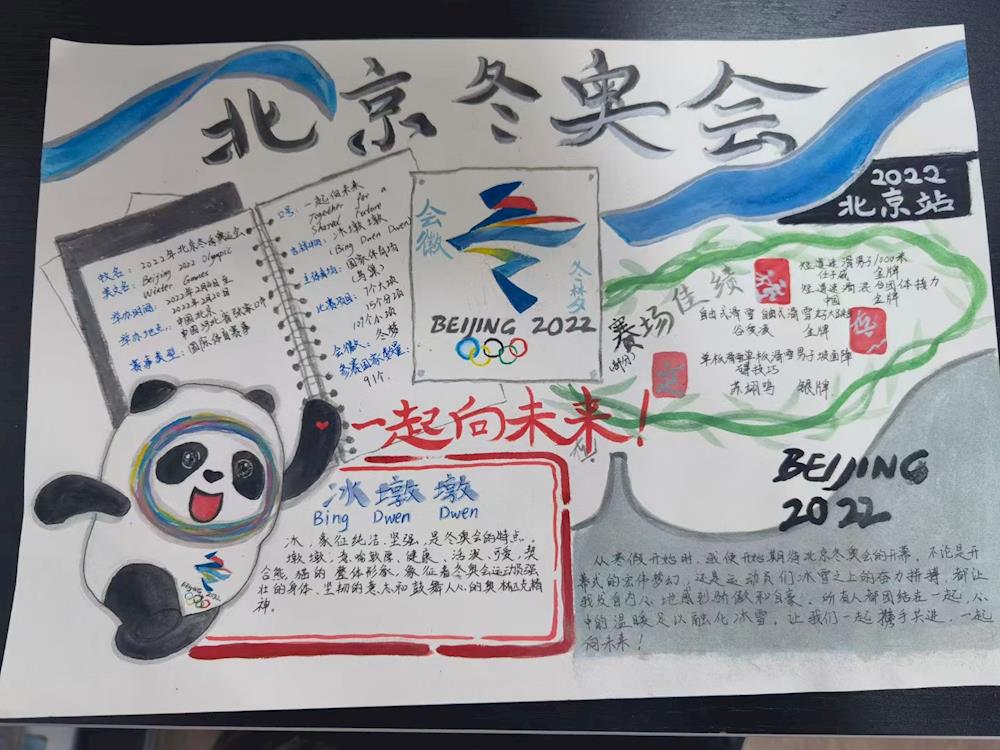 北京冬奥会
2022
北京站
牧名：2022年北京冬季奥运会
英文名：Beijing 2022 Olympic
Winter Games
举办时间：2022年2月4日至
2022年2月20日
举办地点：中国北京、
中国河北省张家口市
赛事类型：国际体育赛事
口号：一起向未来
Together for a
Shared Future
吉祥物：冰墩墩
(Bing Dwen Dwen)
主体育场：国家体育场
(鸟巢)
比赛项目：7个大项
15个分项
109个小项
会徽：冬梦
参赛国家数量：
91个.
会徽
冬梦
BEIJING 2022
赛场佳绩
(部分)
短道速滑男子1000米
任子威 金牌
短道速滑混合团体接力
中国 金牌
自由式滑雪 自由式滑雪女大跳台
谷爱凌 金牌
单板滑雪单板滑雪男子坡面障
碍技巧
苏翊鸣 银牌
一起向未来！
冰墩墩
Bing Dwen Dwen
冰，象征纯洁、坚强，是冬奥会的特点。
墩墩，意喻敦厚、健康、活泼、可爱，契
合熊猫的整体形象，象征着冬奥会运动员强
壮的身体、坚韧的意志和鼓舞人心的奥林匹克精
神。
BEIJING
2022
从寒假开始时，我便开始期待北京冬奥会的开幕，不论是开
幕式的宏伟梦幻，还是运动员们冰雪之上的奋力拼搏，都让
我发自内心地感到骄傲和自豪。所有人都团结在一起，心
中的温暖足以融化冰雪，让我们一起携手共进，一起
向未来！